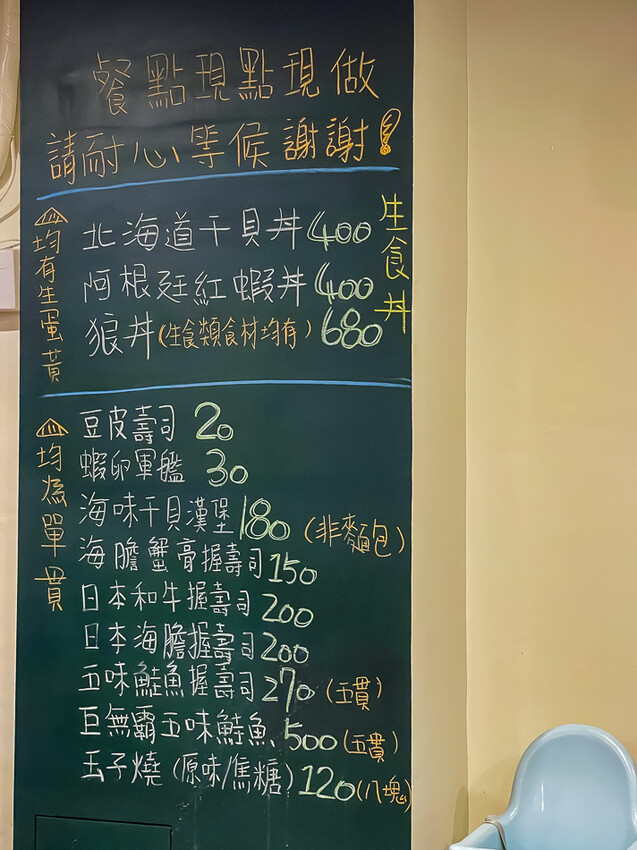 餐點現點現做
請耐心等候謝謝!
生食丼
均有生蛋黃
北海道干貝丼400
阿根廷紅蝦丼400
狼丼(生食類食材均有)680
均為單貫
豆皮壽司 20
蝦卵軍艦 30
海味干貝漢堡180(非麵包)
海膽蟹膏握壽司150
日本和牛握壽司200
日本海膽握壽司200
五味鮭魚握壽司270(五貫)
巨無霸五味鮭魚500(五貫)
玉子燒(原味/焦糖)120(八塊)